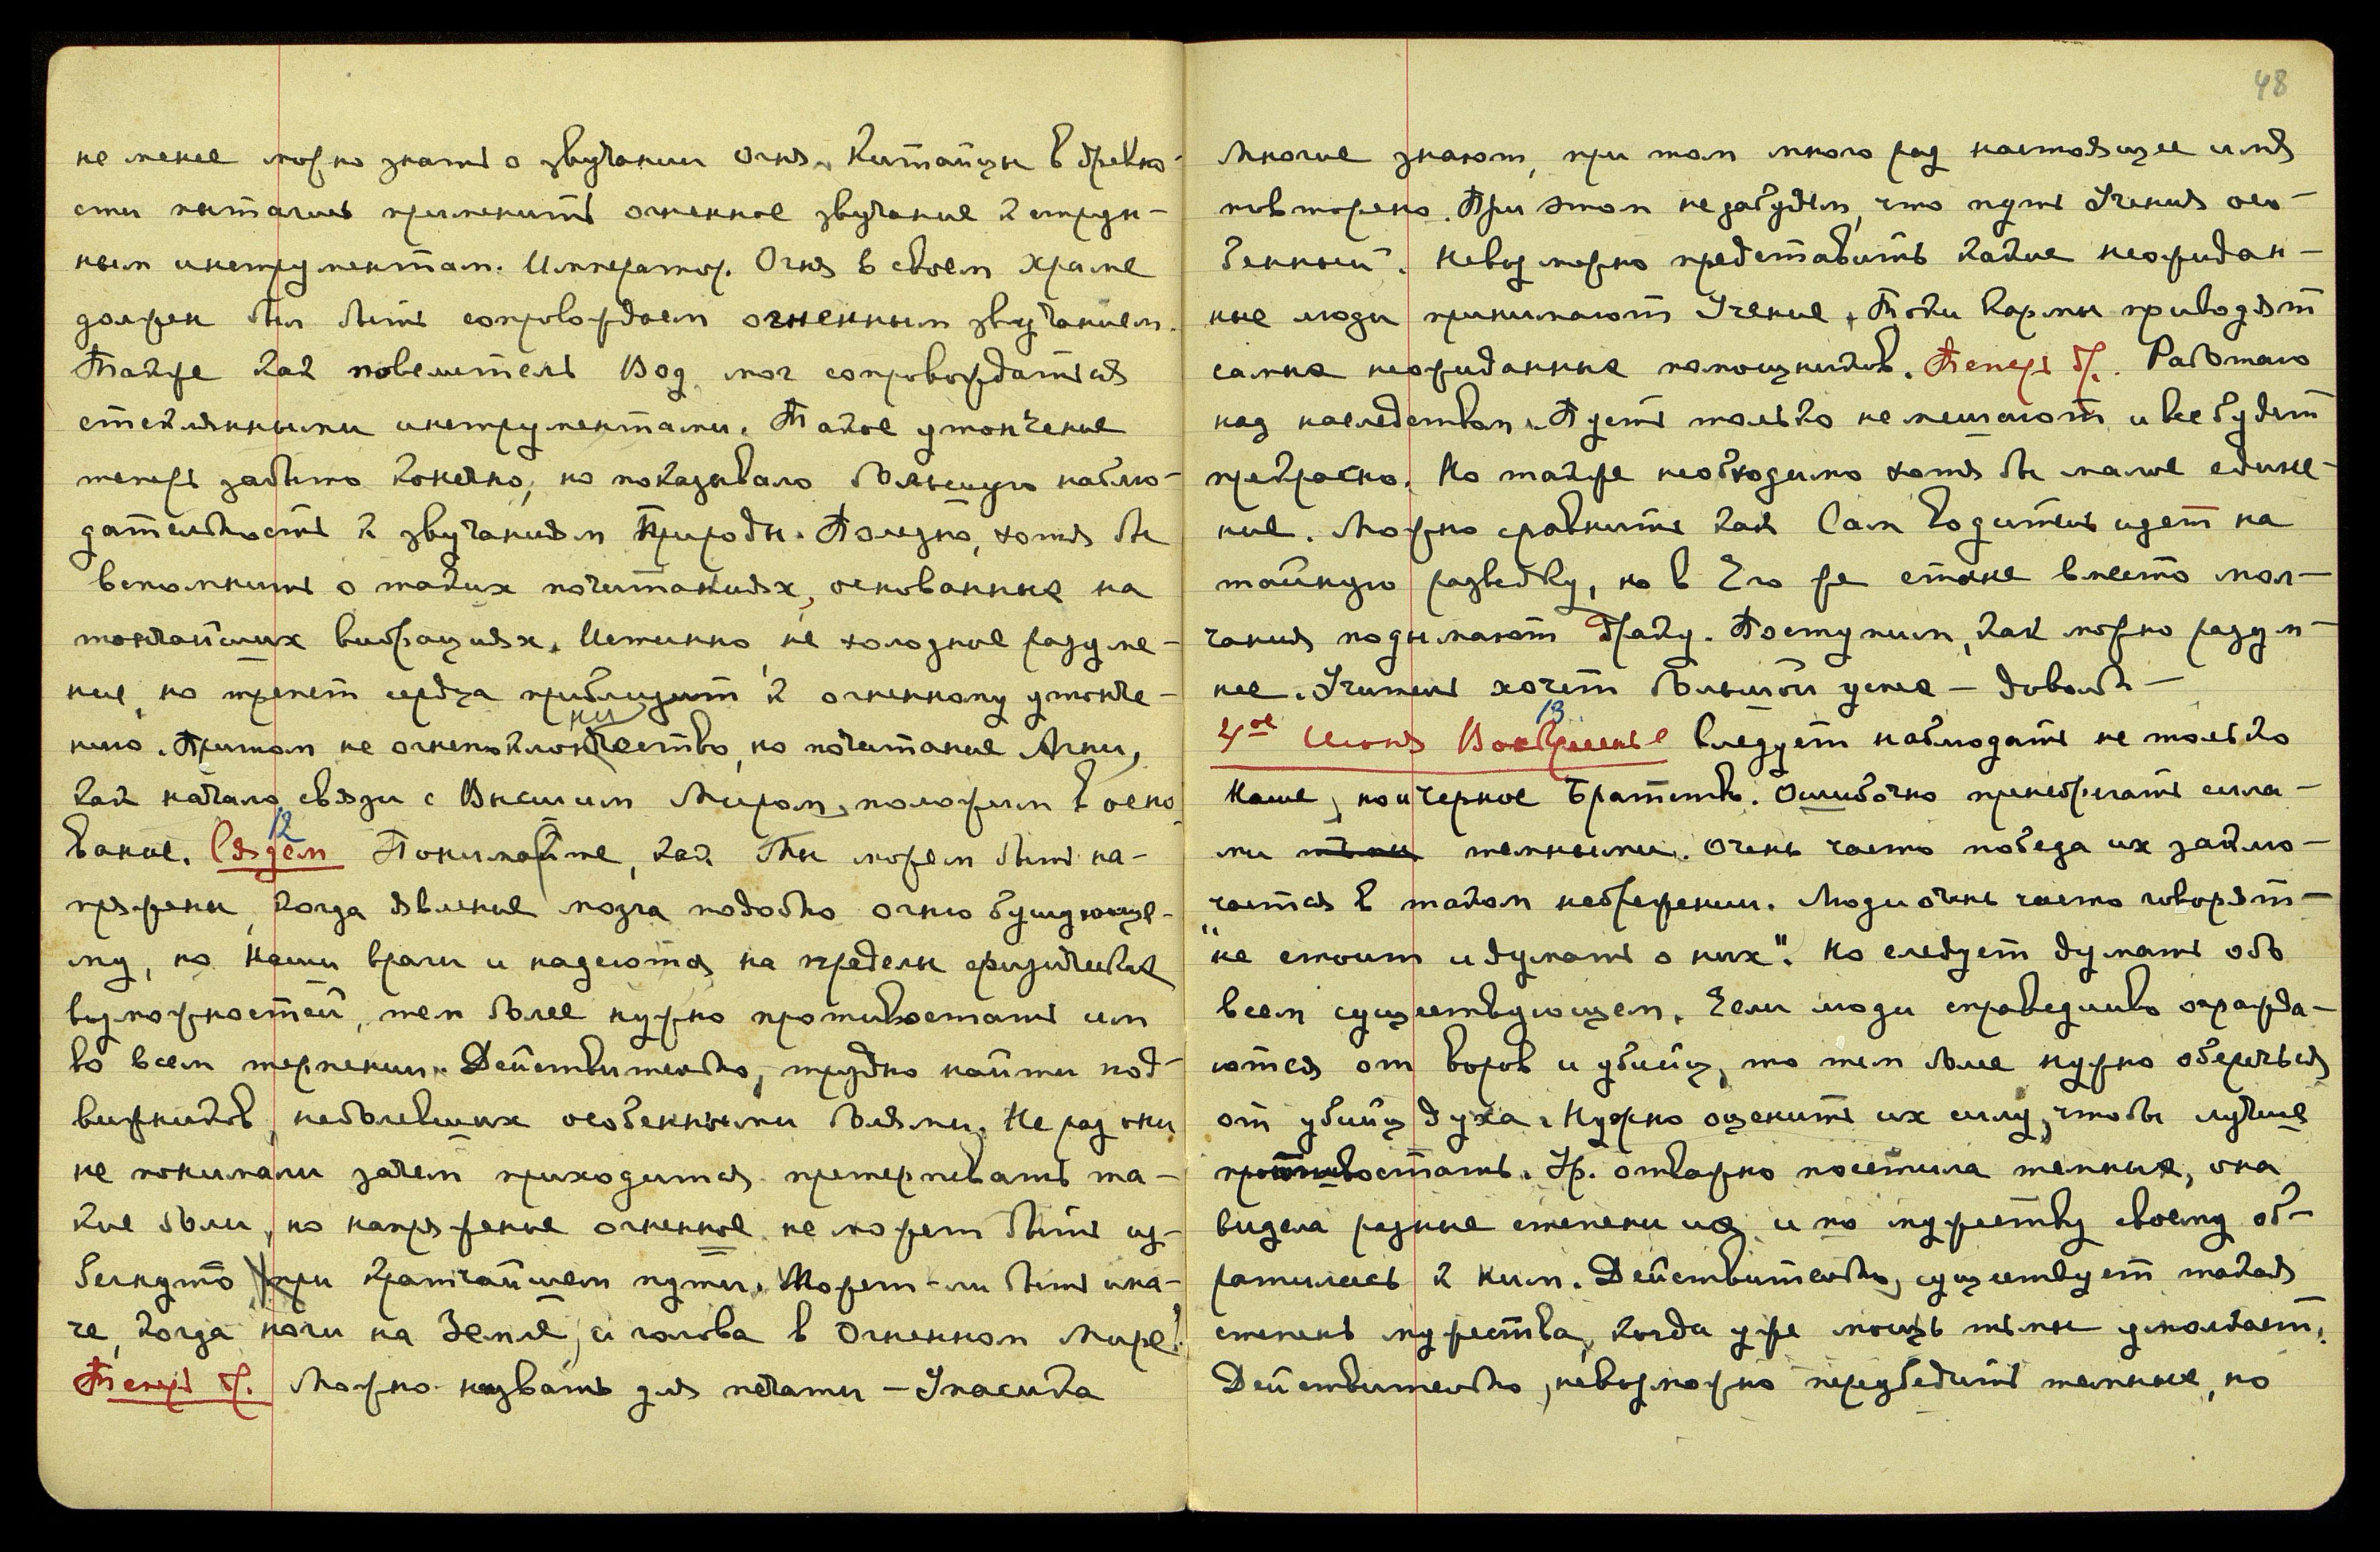 48
не менее можно знать о звучании огня. Китайцы в древно-
сти пытались применить огненное звучание к струн-
ным инструментам. Император. Огня в своем храме
должен был быть сопровождаем огненным звучанием.
Также как повелитель Вод мог сопровождаться
стеклянными инструментами. Такое утончение
теперь забыто конечно, но показывало большую наблю-
дательность к звучаниям Природы. Полезно, хотя бы
вспомнить о таких почитаниях, основанные на
тончайших вибрациях. Истинно, не холодное разуме-
ние, но трепет сердца приблизит к огненному утонче-
нию. Притом не огнепоклонничество, но почитание Агни,
как начало связи с Высшим Миром, положим в осно-
вание. 12 Сядем Понимайте, как Вы можем быть на-
пряжены, когда явление мозга подобно огню бушующе-
му, но Наши враги и надеются на пределы физических
возможностей, тем более нужно противостать им
во всем терпении. Действительно, трудно найти под-
вижников, неболевших особенными болями. Не раз они
не понимали зачем приходится претерпевать та-
кие боли, но напряжение огненное не может быть из-
бегнуто при кратчайшем пути. Может-ли быть ина-
че, когда ноги на Земле, а голова в Огненном Мире!
Теперь др. Можно назвать для печати — Упасика
Многие знают, при том много раз настоящее имя
повторено. При этом не забудем, что путь Учения осо-
бенный. Невозможно представить какие неожидан-
ные люди принимают Учение. Токи Кармы приводят
самые неожиданные помощников. Теперь др. Работаю
над наследством. Пусть только не мешают и все будет
прекрасно. Но также необходимо хотя бы малое едине-
ние. Можно сравнить как Сам Водитель идет на
тайную разведку, но в Его же стане вместо мол-
чания подымают драку. Поступим, как можно разум-
нее. Учитель хочет большой успех — довольн —
4ое Июня Воскресенье 13 Следует наблюдать не только
Наше, но и черное Братство. Ошибочно пренебрегать сила-
ми тьмы темными. Очень часто победа их заклю-
чается в таком небрежении. Люди очень часто говорят —
"не стоит и думать о них". Но следует думать обо
всем существующем. Если люди справедливо огражда-
ются от воров и убийц, то тем более нужно оберечься
от убийц духа. Нужно оценить их силу, чтобы лучше
противостать. Ур. отважно посетила темных, она
видела разные степени их и по мужеству своему об-
ратилась к ним. Действительно, существует такая
степень мужества, когда уже мощь тьмы умолкает.
Действительно, невозможно переубедить темные, но